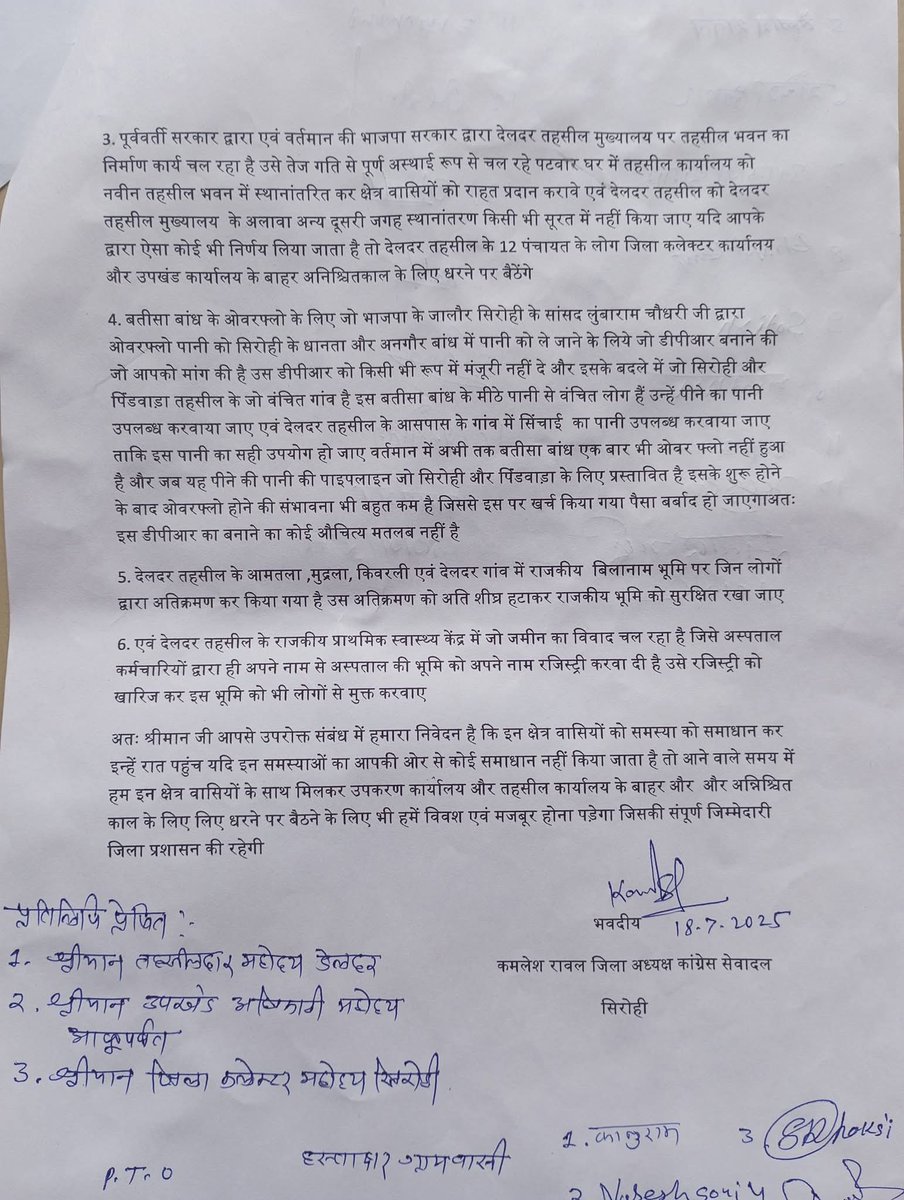 3. पूर्ववर्ती सरकार द्वारा एवं वर्तमान की भाजपा सरकार द्वारा देलदर तहसील मुख्यालय पर तहसील भवन का
निर्माण कार्य चल रहा है उसे तेज गति से पूर्ण अस्थाई रूप से चल रहे पटवार घर में तहसील कार्यालय को
नवीन तहसील भवन में स्थानांतरित कर क्षेत्र वासियों को राहत प्रदान करावे एवं देलदर तहसील को देलदर
तहसील मुख्यालय के अलावा अन्य दूसरी जगह स्थानांतरण किसी भी सूरत में नहीं किया जाए यदि आपके
द्वारा ऐसा कोई भी निर्णय लिया जाता है तो देलदर तहसील के 12 पंचायत के लोग जिला कलेक्टर कार्यालय
और उपखंड कार्यालय के बाहर अनिश्चितकाल के लिए धरने पर बैठेंगे
4. बतीसा बांध के ओवरफ्लो के लिए जो भाजपा के जालौर सिरोही के सांसद लुंबाराम चौधरी जी द्वारा
ओवरफ्लो पानी को सिरोही के धानता और अनगौर बांध में पानी को ले जाने के लिये जो डीपीआर बनाने की
जो आपको मांग की है उस डीपीआर को किसी भी रूप में मंजूरी नहीं दे और इसके बदले में जो सिरोही और
पिंडवाड़ा तहसील के जो वंचित गांव है इस बतीसा बांध के मीठे पानी से वंचित लोग हैं उन्हें पीने का पानी
उपलब्ध करवाया जाए एवं देलदर तहसील के आसपास के गांव में सिंचाई का पानी उपलब्ध करवाया जाए
ताकि इस पानी का सही उपयोग हो जाए वर्तमान में अभी तक बतीसा बांध एक बार भी ओवर फ्लो नहीं हुआ
है और जब यह पीने की पानी की पाइपलाइन जो सिरोही और पिंडवाड़ा के लिए प्रस्तावित है इसके शुरू होने
के बाद ओवरफ्लो होने की संभावना भी बहुत कम है जिससे इस पर खर्च किया गया पैसा बर्बाद हो जाएगाअतः
इस डीपीआर का बनाने का कोई औचित्य मतलब नहीं है
5. देलदर तहसील के आमतला ,मुद्रला, किवरली एवं देलदर गांव में राजकीय बिलानाम भूमि पर जिन लोगों
द्वारा अतिक्रमण कर किया गया है उस अतिक्रमण को अति शीघ्र हटाकर राजकीय भूमि को सुरक्षित रखा जाए
6. एवं देलदर तहसील के राजकीय प्राथमिक स्वास्थ्य केंद्र में जो जमीन का विवाद चल रहा है जिसे अस्पताल
कर्मचारियों द्वारा ही अपने नाम से अस्पताल की भूमि को अपने नाम रजिस्ट्री करवा दी है उसे रजिस्ट्री को
खारिज कर इस भूमि को भी लोगों से मुक्त करवाए
अतः श्रीमान जी आपसे उपरोक्त संबंध में हमारा निवेदन है कि इन क्षेत्र वासियों को समस्या को समाधान कर
इन्हें रात पहुंच यदि इन समस्याओं का आपकी ओर से कोई समाधान नहीं किया जाता है तो आने वाले समय में
हम इन क्षेत्र वासियों के साथ मिलकर उपकरण कार्यालय और तहसील कार्यालय के बाहर और और अन्निश्चित
काल के लिए लिए धरने पर बैठने के लिए भी हमें विवश एवं मजबूर होना पड़ेगा जिसकी संपूर्ण जिम्मेदारी
जिला प्रशासन की रहेगी
भवदीय 18.7.2025
कमलेश रावल जिला अध्यक्ष कांग्रेस सेवादल
सिरोही
प्रतिलिपि प्रेषित :-
1. श्रीमान तहसीलदार महोदय देलदर
2. श्रीमान उपखंड अधिकारी महोदय
आबूपर्वत
3. श्रीमान जिला कलेक्टर महोदय सिरोही
हस्ताक्षर ग्रामवासी
1. कालुराम 3.
P.T.O